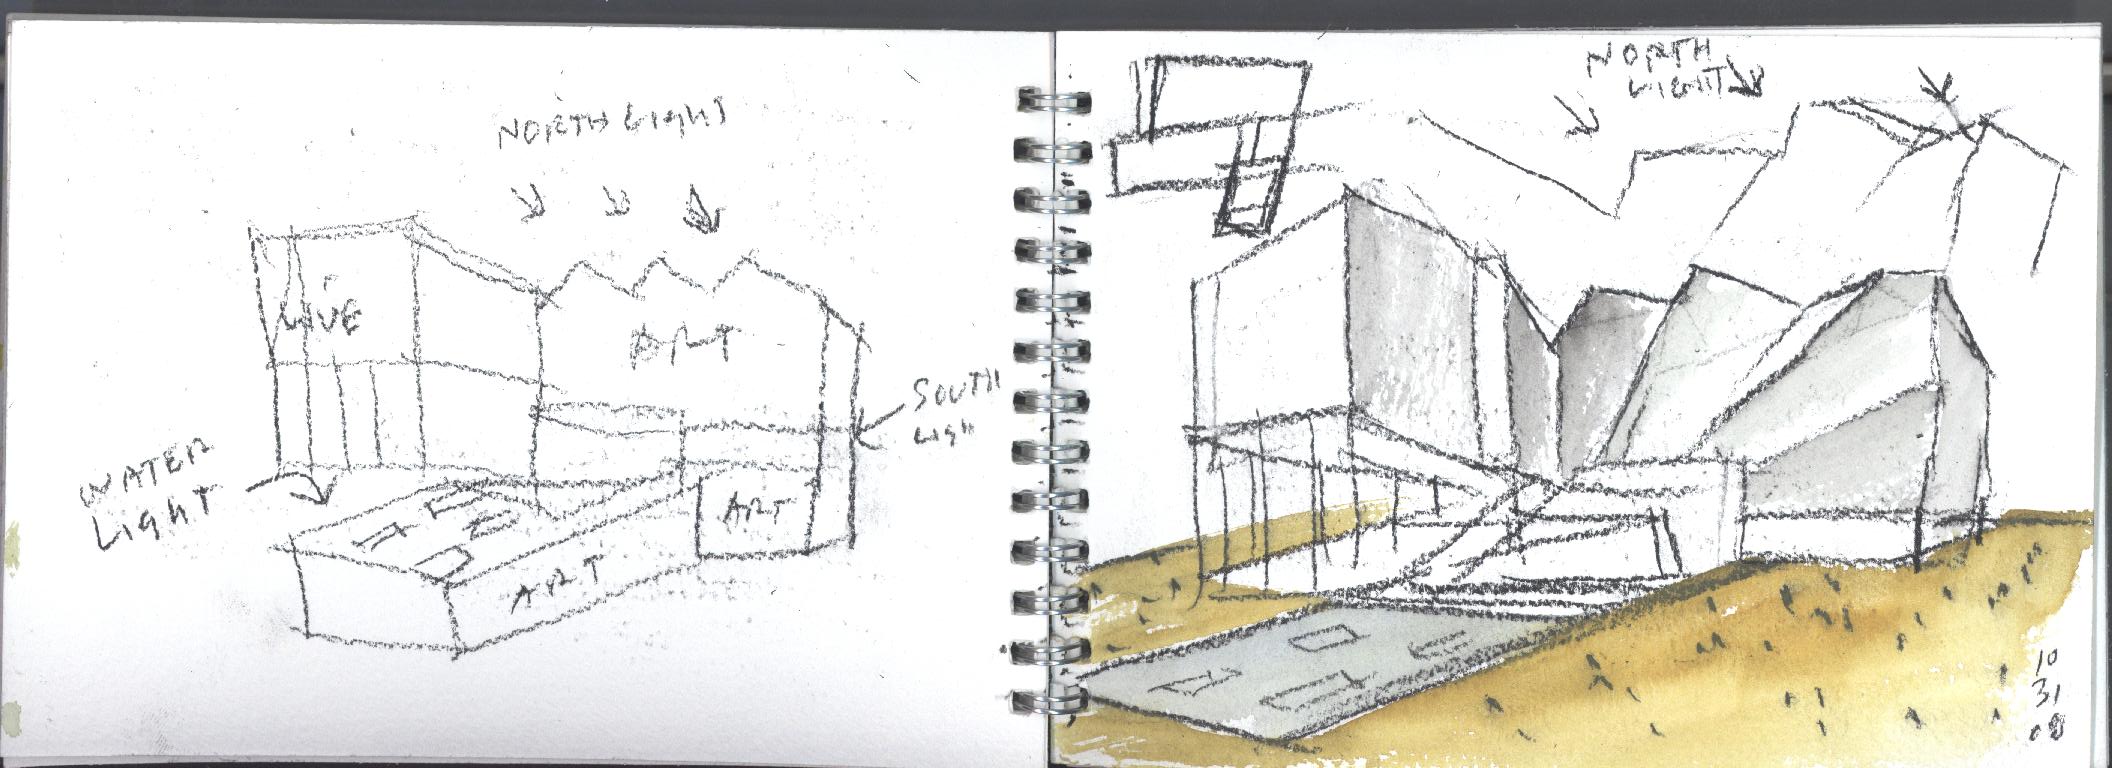 NORTH LIGHT
LIVE
ART
SOUTH
LIGH
WATER
LIGHT
ART
ART
NORTH
LIGHT
10
31
08